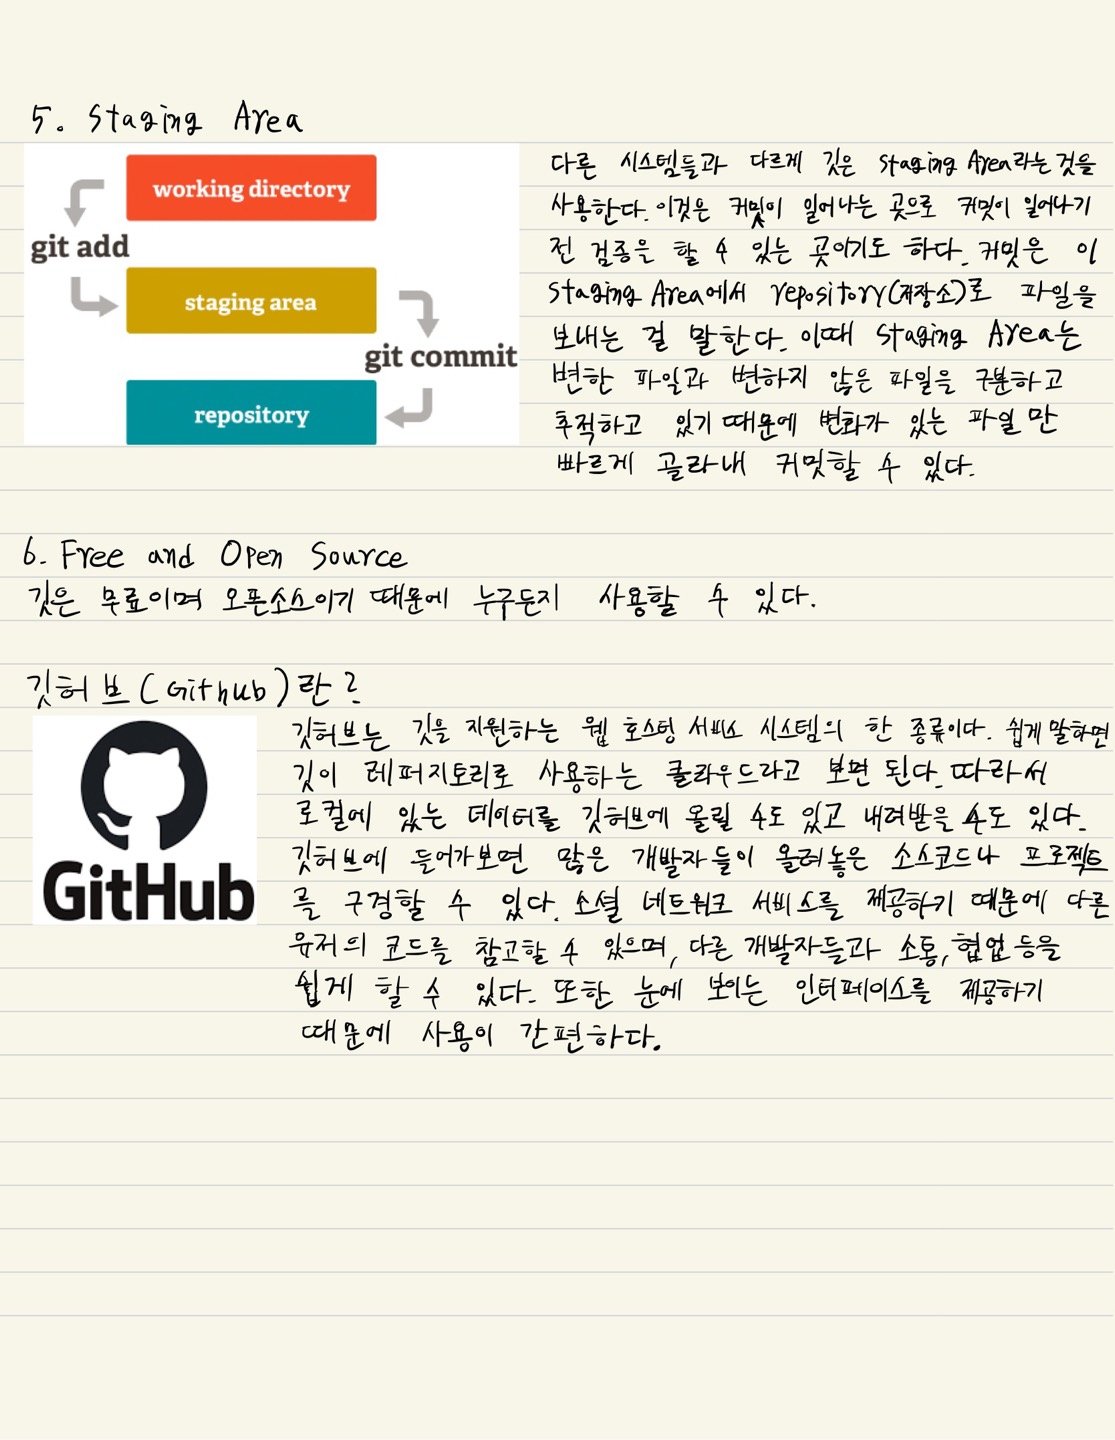 5. Staging Area
working directory
git add
staging area
git commit
repository
다른 시스템들과 다르게 깃은 Staging Area라는 것을
사용한다. 이것은 커밋이 일어나는 곳으로 커밋이 일어나기
전 검증은 할 수 있는 곳이기도 하다. 커밋은 이
Staging Area에서 repository(저장소)로 파일을
보내는 걸 말한다. 이때 Staging Area는
변한 파일과 변하지 않은 파일을 구분하고
추적하고 있기 때문에 변화가 있는 파일만
빠르게 골라내 커밋할 수 있다.
6. Free and Open Source
깃은 무료이며 오픈소스이기 때문에 누구든지 사용할 수 있다.
깃허브(Github)란?
GitHub
깃허브는 깃을 지원하는 웹 호스팅 서비스 시스템의 한 종류이다. 쉽게 말하면
깃이 레퍼지토리로 사용하는 클라우드라고 보면 된다. 따라서
로컬에 있는 데이터를 깃허브에 올릴 수도 있고 내려받을 수도 있다.
깃허브에 들어가보면 많은 개발자들이 올려놓은 소스코드나 프로젝트
를 구경할 수 있다. 소셜 네트워크 서비스를 제공하기 때문에 다른
유저의 코드를 참고할 수 있으며, 다른 개발자들과 소통, 협업 등을
쉽게 할 수 있다. 또한 눈에 보이는 인터페이스를 제공하기
때문에 사용이 간편하다.